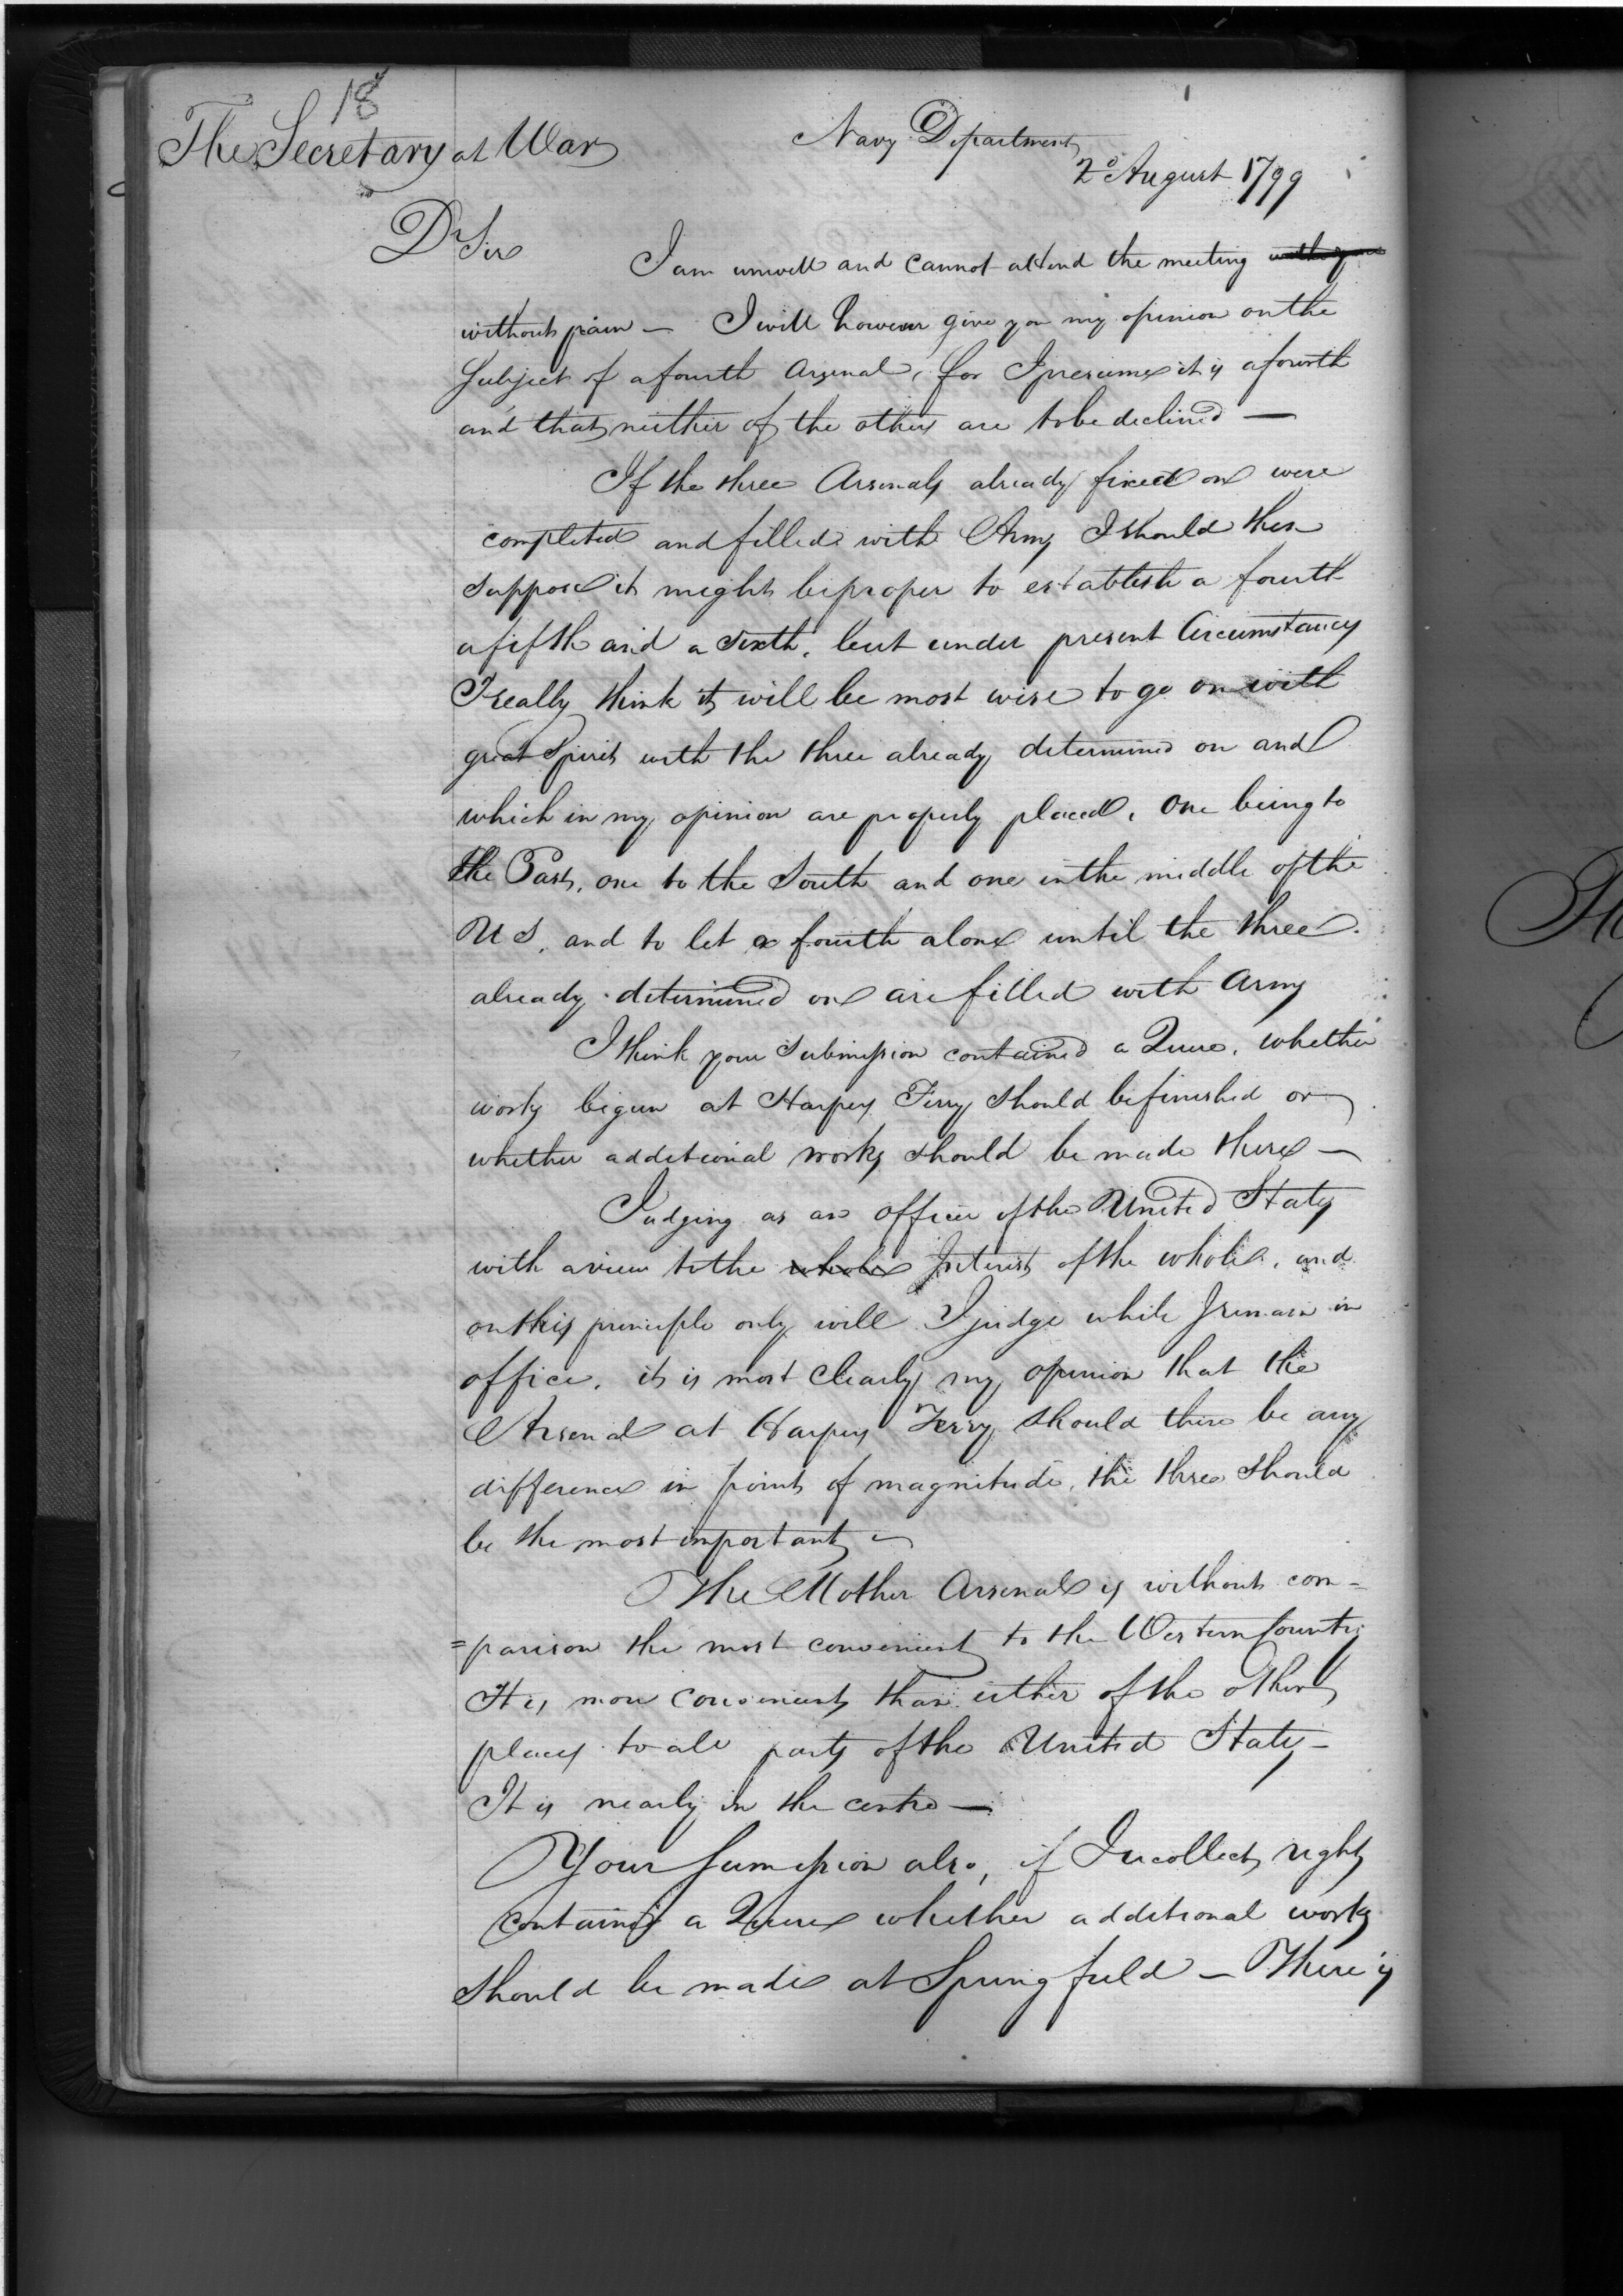 18
The Secretary at War
Navy Department
2d August 1799
Dr Sir
I am unwell and cannot attend the meeting
without pain — I will however give you my opinion on the
subject of a fourth Arsenal, for I presume it is a fourth
and that neither of the others are to be declined —
If the three Arsenals already fixed on were
completed and filled with Arms I should then
suppose it might be proper to establish a fourth
a fifth and a sixth, but under present Circumstances
I really think it will be most wise to go on with
great Spirit with the three already determined on and
which in my opinion are properly placed, One being to
the East, one to the South and one in the middle of the
U S, and to let a fourth alone until the three
already determined on are filled with Arms
I think your Submission contained a Quere, whether
works begun at Harpers Ferry should be finished or
whether additional works should be made there —
Judging as an officer of the United States
with a view to the whole Interest of the whole, and
on this principle only will I judge while I remain in
office, it is most clearly my opinion that the
Arsenal at Harpers Ferry, should there be any
difference in point of magnitude, the three should
be the most important —
The Mother Arsenal is without com=
=parison the most convenient to the Western Country
It is more convenient than either of the other
places to all parts of the United States —
It is nearly in the centre —
Your Sumission also, if I recollect right
contains a Quere whether additional works
should be made at Springfield — There is